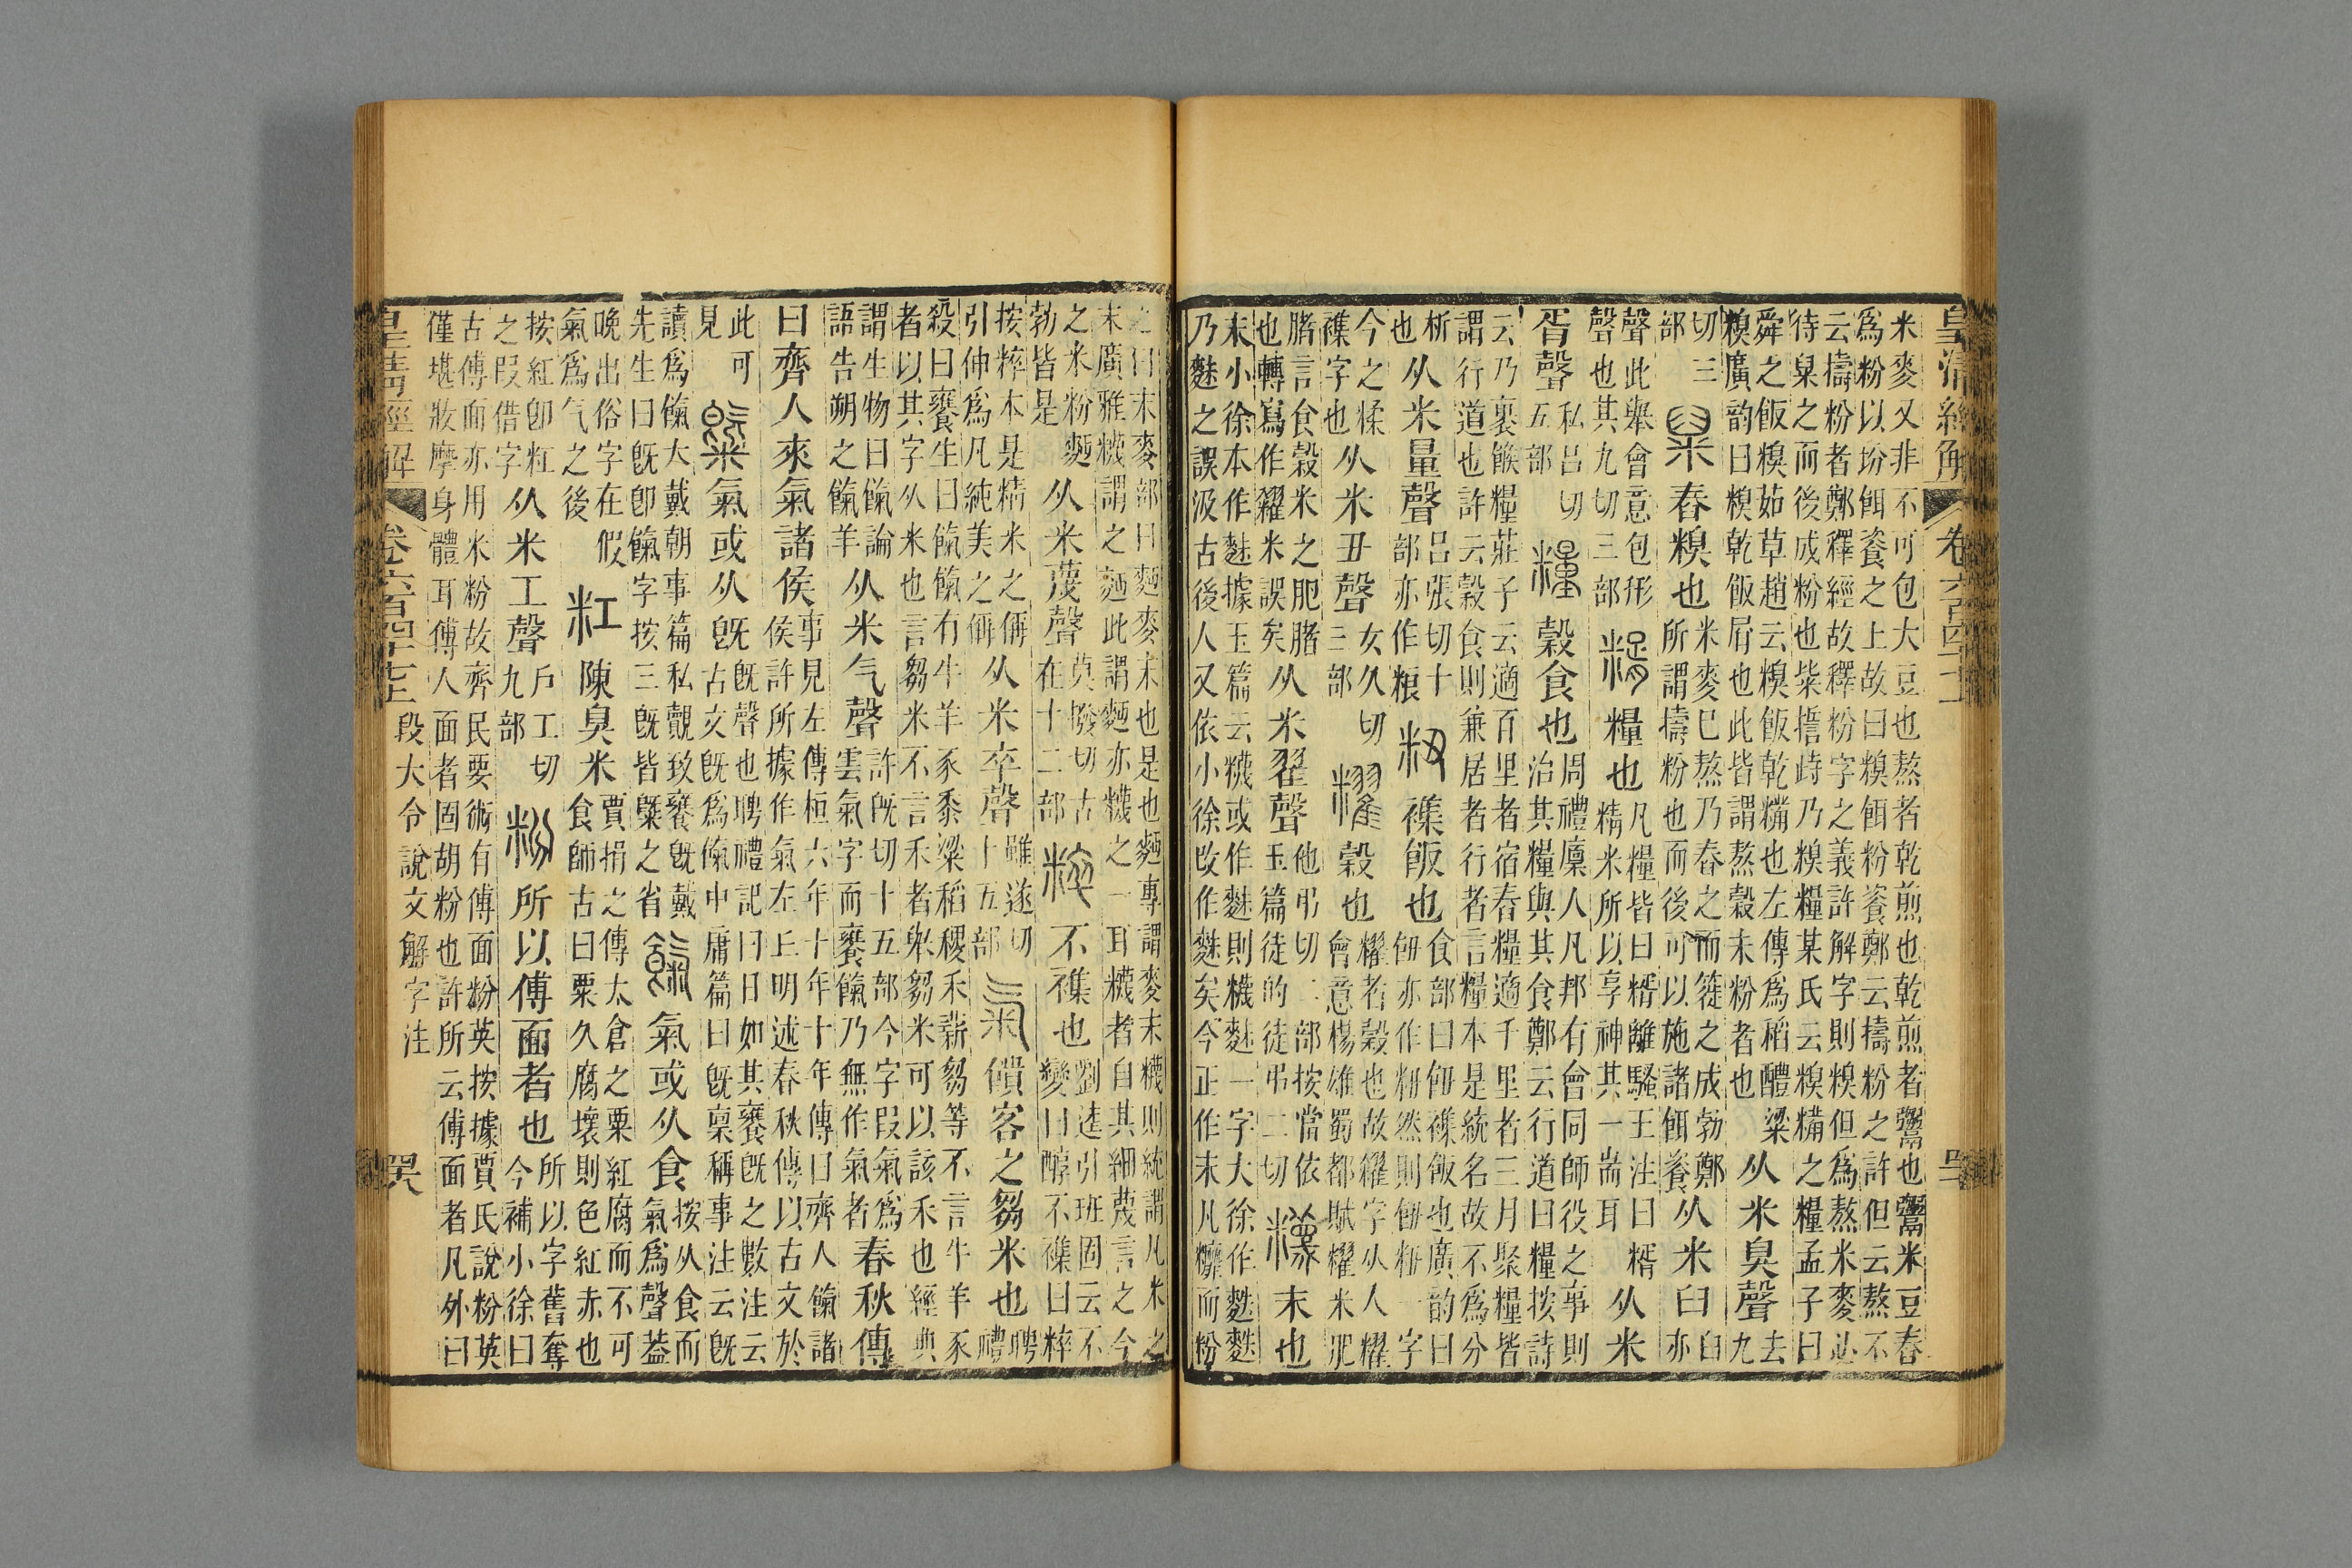 皇清經解 卷六百四十七上
米麥又非不可包大豆也熬者乾煎也乾煎者鬻也鬻米豆舂
為粉以坋餌餈之上故曰糗餌粉餈鄭云擣粉之許但云熬不
云擣粉者鄭釋經故釋粉字之義許解字則糗但為熬米麥必
待臬之而後成粉也柴誓峙乃糗糧某氏云糗糒之糧孟子曰
舜之飯糗茹草趙云糗飯乾糒也左傳為稻醴粱
糗廣韵曰糗乾飯屑也此皆謂熬穀未粉者也 从米臭聲 去九
切三部 䊆 舂糗也 米麥已熬乃舂之而簁之成勃鄭
所謂擣粉也而後可以施諸餌餈 从米臼 臼亦
聲此舉會意包形聲也其九切三部 糈 糧也 凡糧皆曰糈離騷王注曰糈
精米所以享神其一耑耳 从米
胥聲 私呂切五部 糧 穀食也 周禮廩人凡邦有會同師役之事則
治其糧與其食鄭云行道曰糧按詩
云乃裹餱糧莊子云適百里者宿舂糧適千里者三月聚糧皆
謂行道也許云穀食則兼居者行者言糧本是統名故不為分
析也 从米量聲 呂張切十部亦作粮 粈 襍飯也 食部曰飷襍飯也廣韵曰
飷亦作粈然則飷粈一字
今之糅襍字也 从米丑聲 女久切三部 䊮 穀也 䊮者穀也故糴字从人䊮
會意楊雄蜀都賦䊮米肥
腯言食穀米之肥腯也轉寫作糴米誤矣 从米翟聲 他弔切二部按當依
玉篇徒的徒弔二切 䊳 末也
末小徐本作麩據玉篇云䊳或作䴲則䊳䴲一字大徐作麩麩
乃䴲之誤汲古後人又依小徐改作麩矣今正作末凡糠而粉
之曰末麥部曰麪麥末也是也麪專謂麥末䊳則統謂凡米之
末廣雅䊳謂之麪此謂麪亦䊳之一耳䊳者自其細蔑言之今
之米粉麪勃皆是 从米蔑聲 莫撥切古在十二部 粹 不襍也 劉逵引班固云不
變曰醇不襍曰粹
按粹本是精米之偁引伸為凡純美之偁 从米卒聲 雖遂切十五部 氣 饋客之芻米也 聘禮
殺曰饔生曰餼餼有牛羊豕黍粱稻稷禾薪芻等不言牛羊豕
者以其字从米也言芻米不言禾者舉芻米可以該禾也經典
謂生物曰餼論語告朔之餼羊 从米气聲 許旣切十五部今字叚氣為
雲氣字而饔餼乃無作氣者 春秋傳
曰齊人來氣諸侯 事見左傳桓六年十年十年傳曰齊人餼諸
侯許所據作氣左丘明述春秋傳以古文於
此可見 䊠 氣或从旣 旣聲也聘禮記曰日如其饔旣之數注云
古文旣為餼中庸篇曰旣稟稱事注云旣
讀為餼大戴朝事篇私覿致饔旣戴
先生曰旣卽餼字按三旣皆䊠之省 餼 氣或从食 按从食而氣為聲葢
晚出俗字在假氣為气之後 粠 陳臭米 賈捐之傳太倉之粟紅腐而不可
食師古曰粟久腐壞則色紅赤也
按紅卽粠之叚借字 从米工聲 戶工切九部 粉 所以傅面者也 所以字舊奪
今補小徐曰
古傅面亦用米粉故齊民要術有傅面粉英按據賈氏說粉英
僅堪妝摩身體耳傅人面者固胡粉也許所云傅面者凡外曰
皇清經解 卷六百四十七上 段大令說文解字注